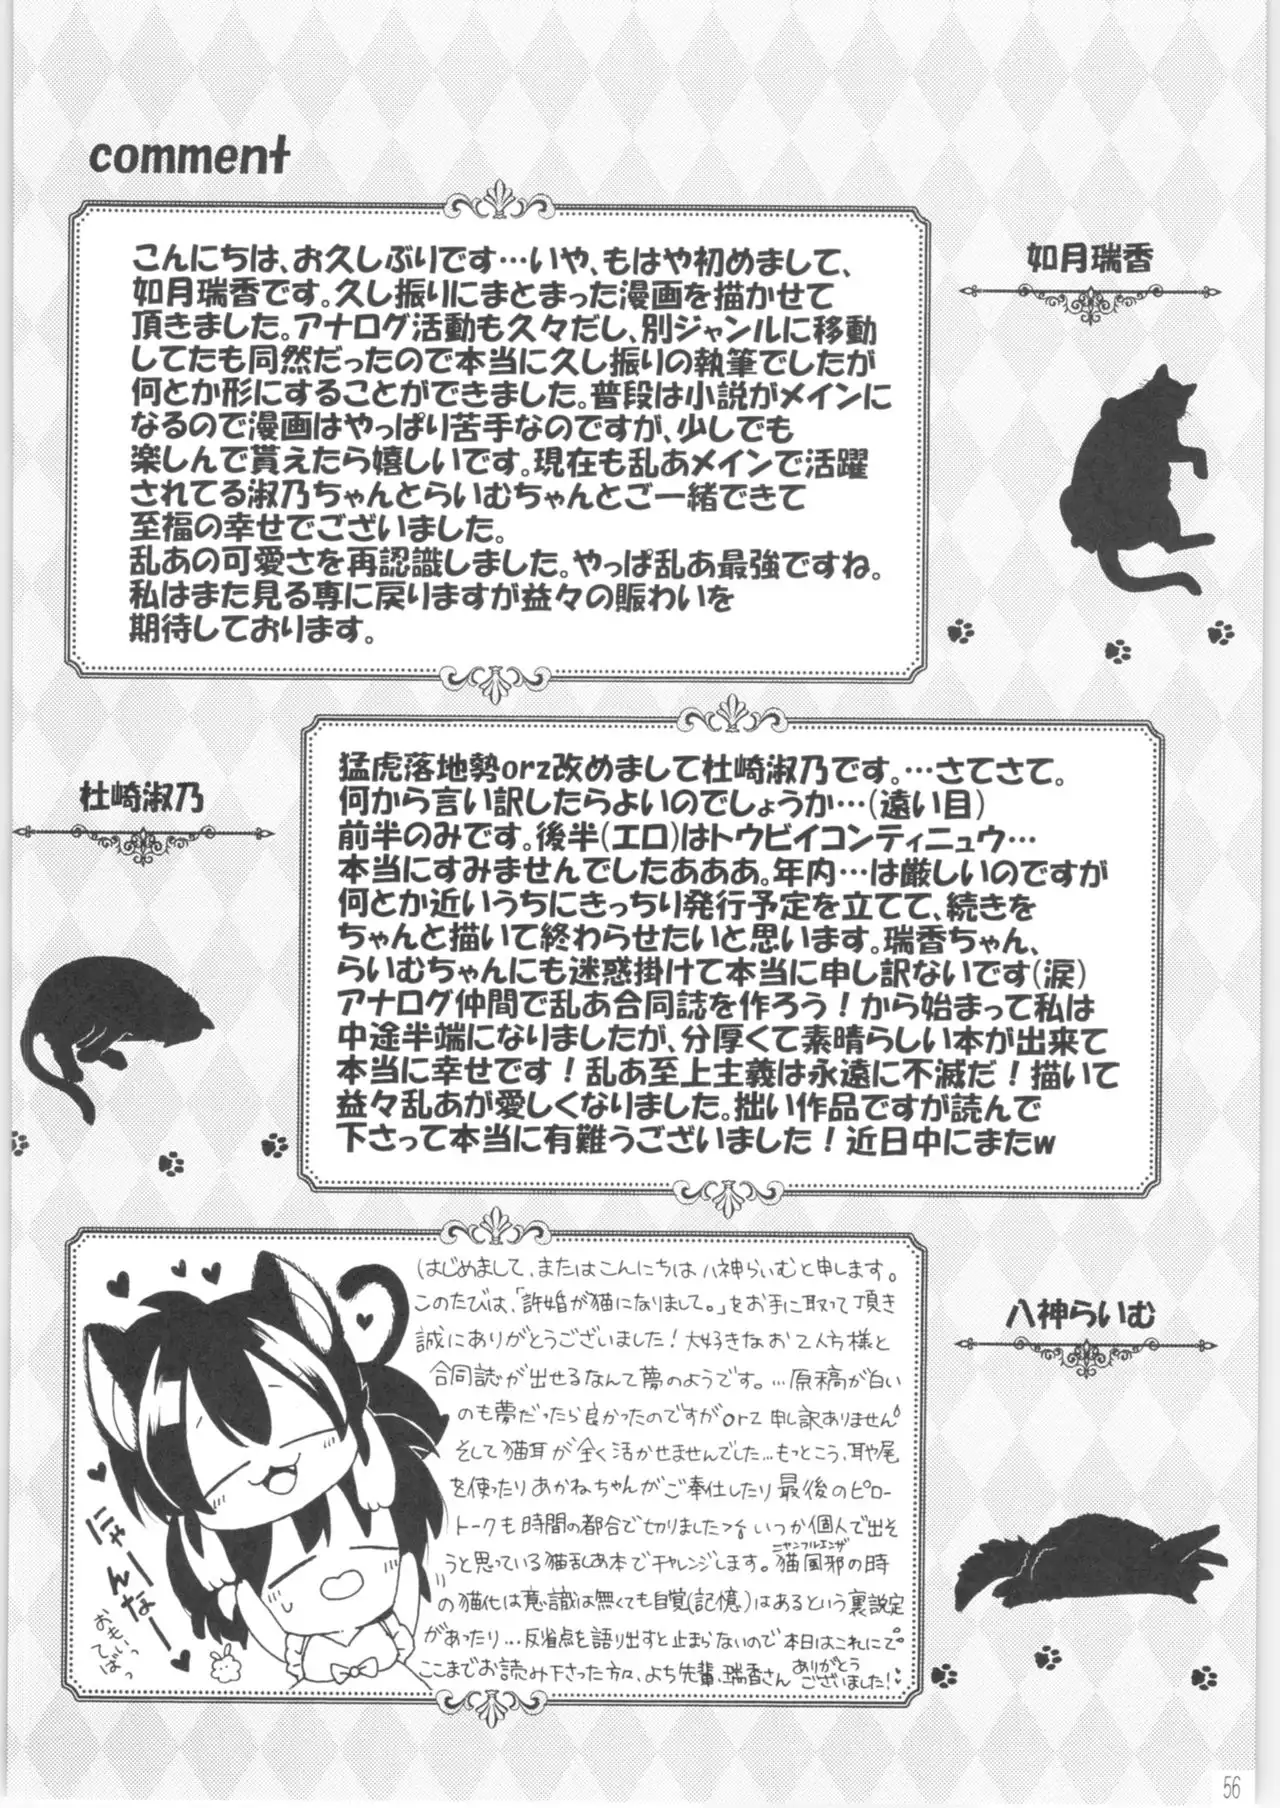 comment
如月瑞香
こんにちは、お久しぶりです…いや、もはや初めまして、
如月瑞香です。久し振りにまとまった漫画を描かせて
頂きました。アナログ活動も久々だし、別ジャンルに移動
してたも同然だったので本当に久し振りの執筆でしたが
何とか形にすることができました。普段は小説がメインに
なるので漫画はやっぱり苦手なのですが、少しでも
楽しんで貰えたら嬉しいです。現在も乱あメインで活躍
されてる淑乃ちゃんとらいむちゃんとご一緒できて
至福の幸せでございました。
乱あの可愛さを再認識しました。やっぱ乱あ最強ですね。
私はまた見る専に戻りますが益々の賑わいを
期待しております。
杜崎淑乃
猛虎落地勢orz改めまして杜崎淑乃です。…さてさて。
何から言い訳したらよいのでしょうか…(遠い目)
前半のみです。後半(エロ)はトウビイコンティニュウ…
本当にすみませんでしたあああ。年内…は厳しいのですが
何とか近いうちにきっちり発行予定を立てて、続きを
ちゃんと描いて終わらせたいと思います。瑞香ちゃん、
らいむちゃんにも迷惑掛けて本当に申し訳ないです(涙)
アナログ仲間で乱あ合同誌を作ろう！から始まって私は
中途半端になりましたが、分厚くて素晴らしい本が出来て
本当に幸せです！乱あ至上主義は永遠に不滅だ！描いて
益々乱あが愛しくなりました。拙い作品ですが読んで
下さって本当に有難うございました！近日中にまたw
八神らいむ
はじめまして、またはこんにちは八神らいむと申します。
このたびは、「許婚が猫になりまして。」をお手に取って頂き
誠にありがとうございました！大好きなお二人方様と
合同誌が出せるなんて夢のようです。…原稿が白い
のも夢だったら良かったのですがorz 申し訳ありません
そして猫耳が全く活かせませんでした…もっとこう、耳や尾
を使ったりあかねちゃんがご奉仕したり最後のピロー
トークも時間の都合で切りました いつか個人で出そ
うと思っている猫乱あ本でチャレンジします。猫風邪の時
ニャンフルエンザ
の猫化は意識は無くても自覚(記憶)はあるという裏設定
があったり…反省点を語り出すと止まらないので本日はこれにて
ここまでお読み下さった方々、よち先輩、瑞香さん ありがとう
ございました！
にゃーんなー
おもいっ
てばっ
56